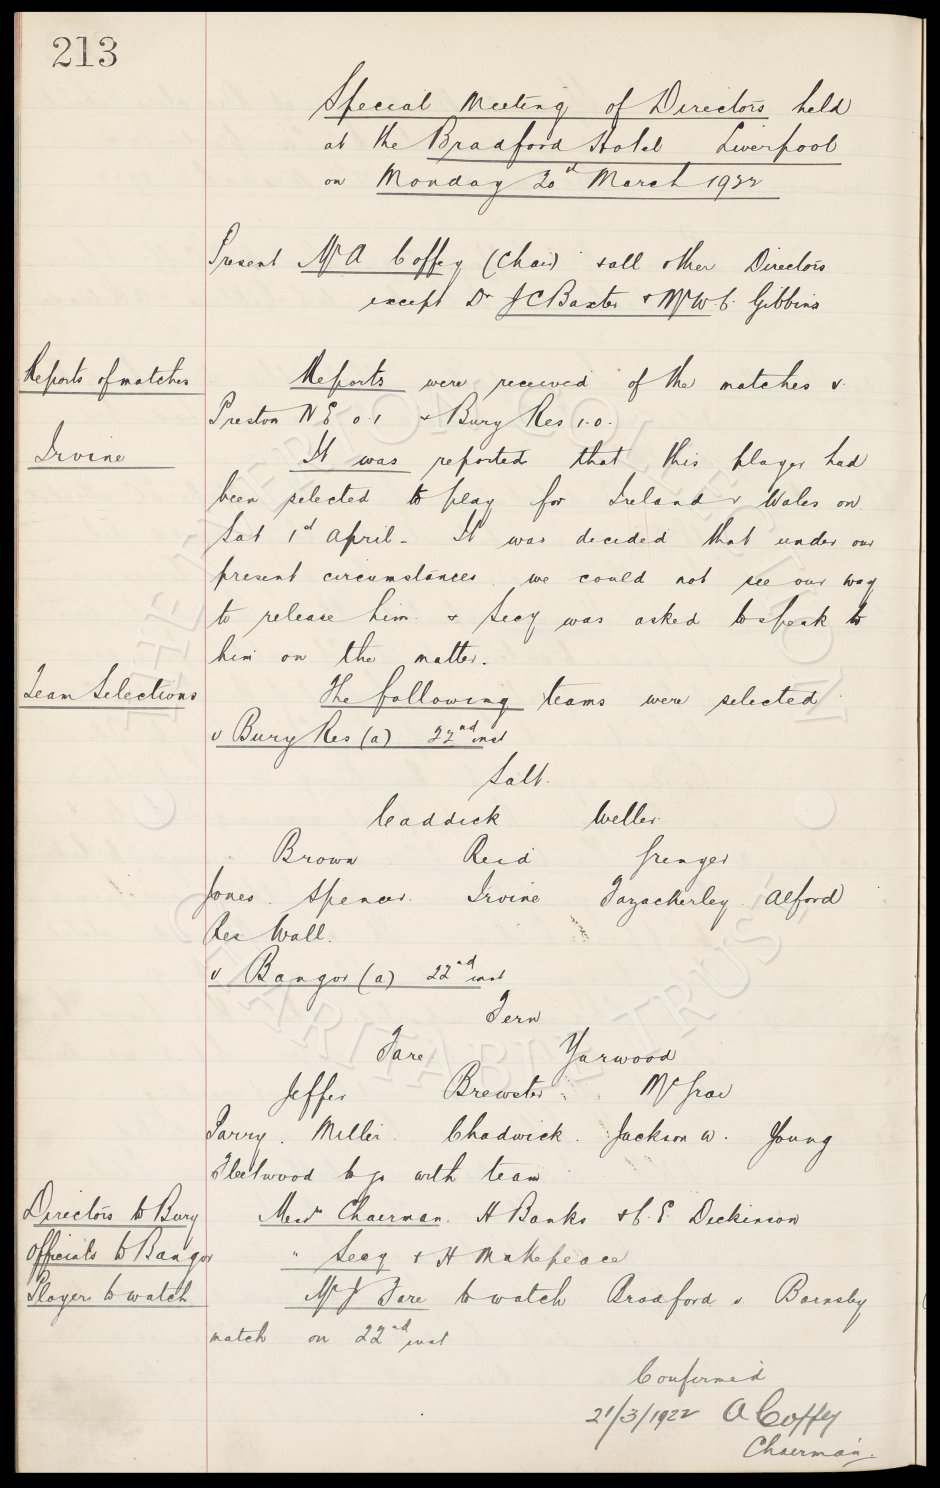 213
Special Meeting of Directors held
at the Bradford Hotel Liverpool
on Monday 20th March 1922
Present Mr A Coffey (Chair) & all other Directors
except Dr J C Baxter & Mr W. C. Gibbins
Reports of matches
Reports were received of the matches v.
Preston N E 0.1 & Bury Res 1.0.
Irvine
It was reported that this player had
been selected to play for Ireland v Wales on
Sat 1st April. It was decided that under our
present circumstances we could not see our way
to release him. & Secy was asked to speak to
him on the matter.
Team Selections
The following teams were selected
v Bury Res (a) 22nd inst
Salt.
Caddick Weller.
Brown Reid Grenyer
Jones. Spencer. Irvine Fazackerley. Alford
Res Wall.
v Bangor (a) 22nd inst
Fern
Fare Yarwood
Jeffer Brewster
Parry. Miller. Chadwick. Jackson W. Young
Fleetwood to go with team
Directors to Bury
Messrs Chairman. H Banks & C. E. Dickinson
Officials to Bangor
" Secy & H Makepeace
Player to watch
Mr J Fare to watch Bradford v Barnsley
match on 22nd inst
Confirmed
21/3/1922 A Coffey
Chairman.
THE EVERTON COLLECTION
CHARITABLE TRUST